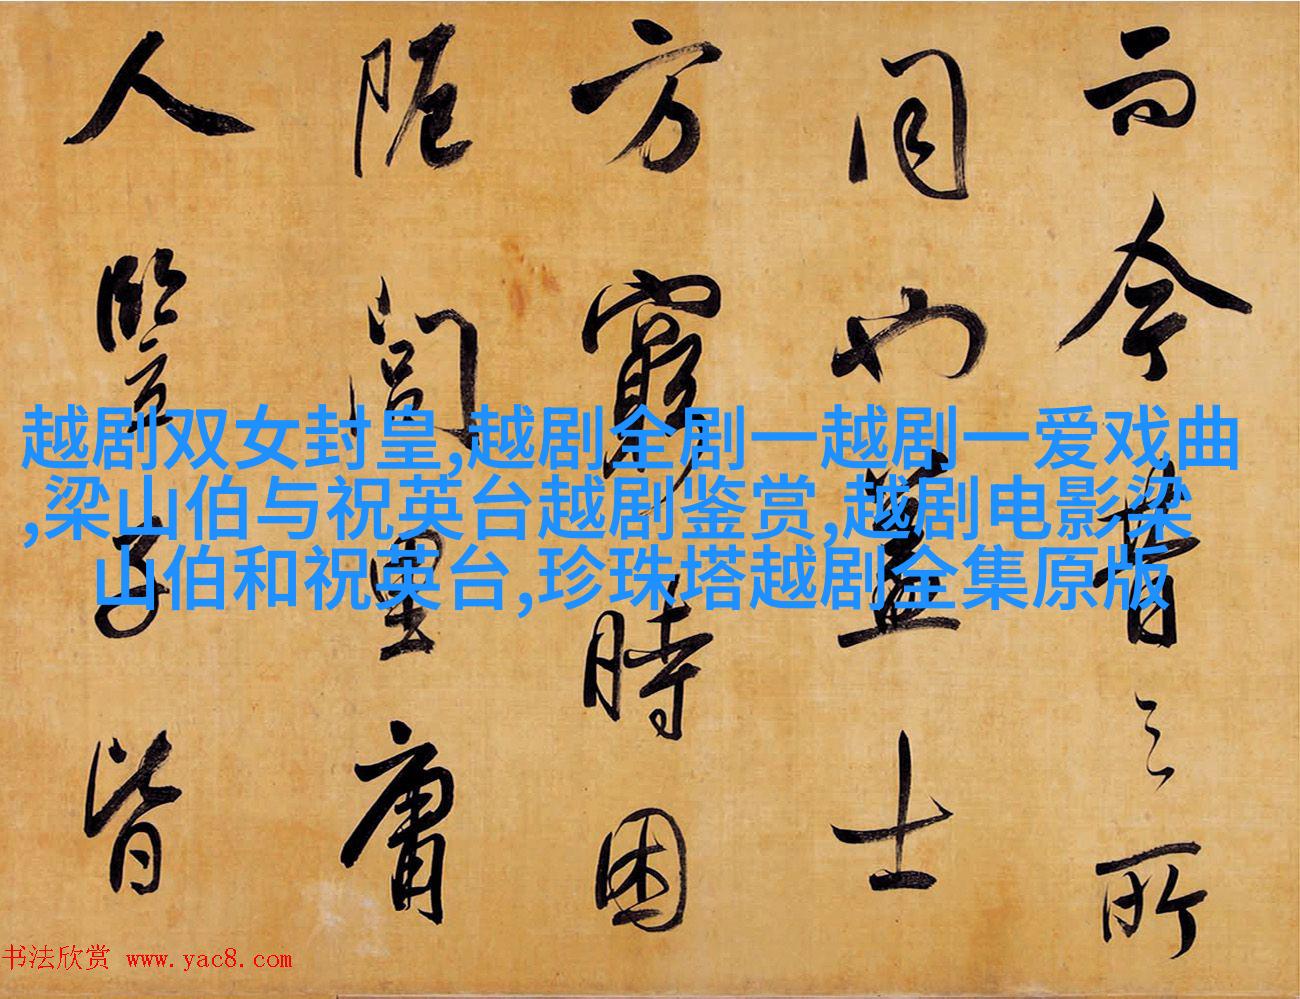 而今昔之所
同也蓋士
方窮時困
阨閭里庸
人豎子皆
越剧双女封皇,越剧全剧一越剧一爱戏曲
,梁山伯与祝英台越剧鉴赏,越剧电影梁
山伯和祝英台,珍珠塔越剧全集原版
书法欣赏 www.yac8.com